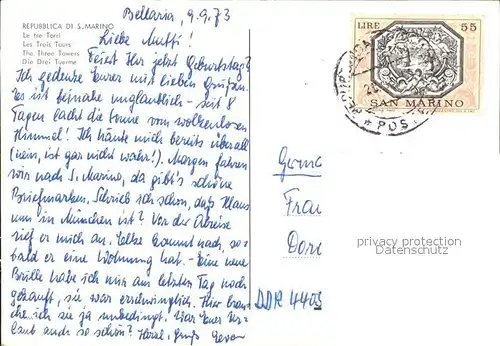 Bellaria, 9.9.73
REPUBBLICA DI S. MARINO
Le tre Torri
Les Trois Tours
The Three Towers
Die Drei Tuerme
Liebe Mutti!
Feiert Ihr jetzt Geburtstag?
Ich gedenke Eurer mit lieben Grüßen.
Es ist beinahe unglaublich - seit 8
Tagen lacht die Sonne vom wolkenlosen
Himmel! Ich häute mich bereits überall
(nein, ist gar nicht wahr!). Morgen fahren
wir nach S. Marino, da gibt's schöne
Briefmarken. Schrieb ich schon, daß Klaus
nun in München ist? Vor der Abreise
rief er mich an. Elke kommt nach, so-
bald er eine Wohnung hat. - Eine neue
Brille habe ich mir am letzten Tag noch
gekauft, sie war erschwinglich. Hier brau-
che ich sie ja unbedingt. War Euer Ur-
laub auch so schön? Herzl. Grüße
LIRE 55
SAN MARINO
POS
Frau
DDR 4405
privacy protection by
VEREMIUM.COM